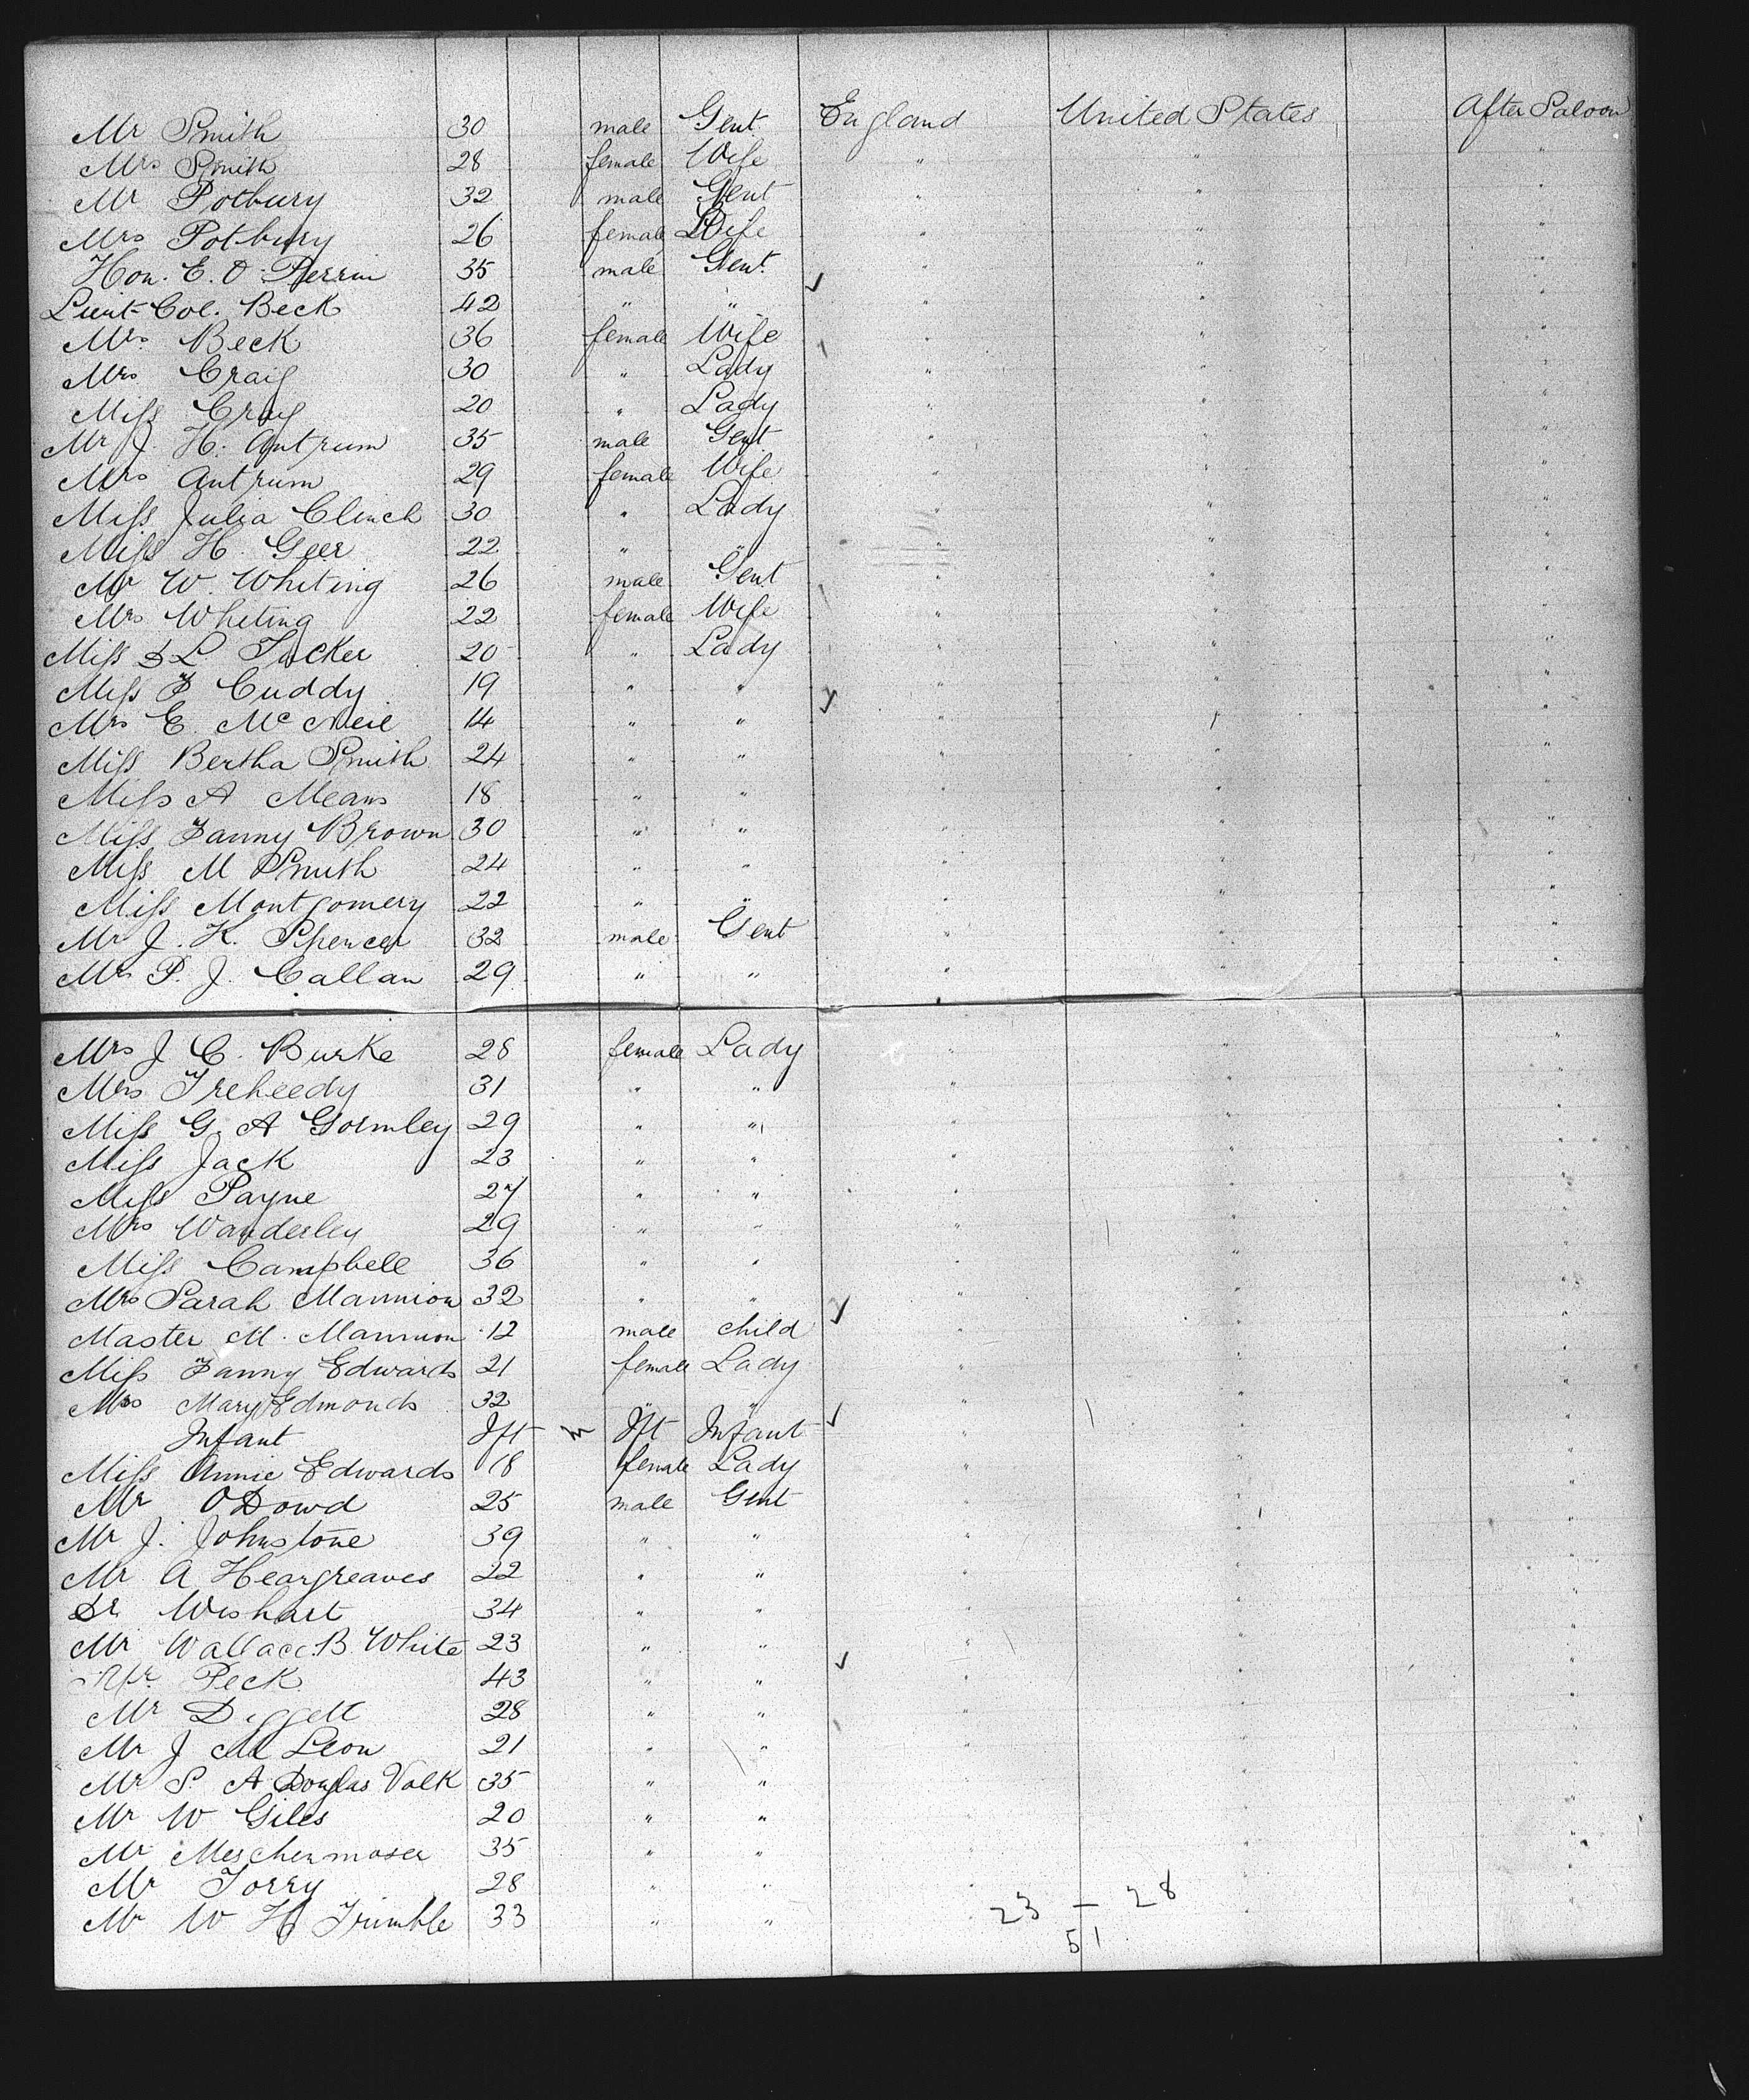 Mr Smith 30 male Gent. England United States After Saloon
Mrs Smith 28 female Wife " " "
Mr Potbury 32 male Gent " " "
Mrs Potbury 26 female Wife " " "
Hon. E. O. Perrin 35 male Gent. " " "
Lieut-Col. Beck 42 " " " " "
Mrs. Beck 36 female Wife " " "
Mrs Craig 30 " Lady " " "
Miss Craig 20 " Lady " " "
Mr J. H. Antrum 35 male Gent " " "
Mrs Antrum 29 female Wife " " "
Miss Julia Clinch 30 " Lady " " "
Miss H. Geer 22 " " " " "
Mr W. Whiting 26 male Gent " " "
Mrs Whiting 22 female Wife " " "
Miss D L. Tucker 20 " Lady " " "
Miss F Cuddy 19 " " " " "
Mrs E. McNeil 14 " " " " "
Miss Bertha Smith 24 " " " " "
Miss A Means 18 " " " " "
Miss Fanny Brown 30 " " " " "
Miss M Smith 24 " " " " "
Miss Montgomery 22 " " " " "
Mr J. K. Spencer 32 male Gent " " "
Mr P. J. Callan 29 " " " " "
Mrs J C. Burke 28 female Lady " " "
Mrs Treheedy 31 " " " " "
Miss G. A Gormley 29 " " " " "
Miss Jack 23 " " " " "
Miss Payne 27 " " " " "
Mrs Wanderley 29 " " " " "
Miss Campbell 36 " " " " "
Mrs Sarah Mannion 32 " " " " "
Master M. Mannion 12 male child " " "
Miss Fanny Edwards 21 female Lady " " "
Mrs Mary Edmonds 32 " " " " "
Infant Ift m Ift Infant " " "
Miss Annie Edwards 18 female Lady " " "
Mr O Dowd 25 male Gent " " "
Mr J. Johnstone 39 " " " " "
Mr A Heargreaves 22 " " " " "
Dr Wishart 34 " " " " "
Mr Wallace B. White 23 " " " " "
Mr. Peck 43 " " " " "
Mr Diggett 28 " " " " "
Mr J Mc Leon 21 " " " " "
Mr S. A Douglas Volk 35 " " " " "
Mr W Giles 20 " " " " "
Mr Meschermoser 35 " " " " "
Mr Torry 28 " " " " "
Mr W H Trimble 33 " " " "
23 – 28
51